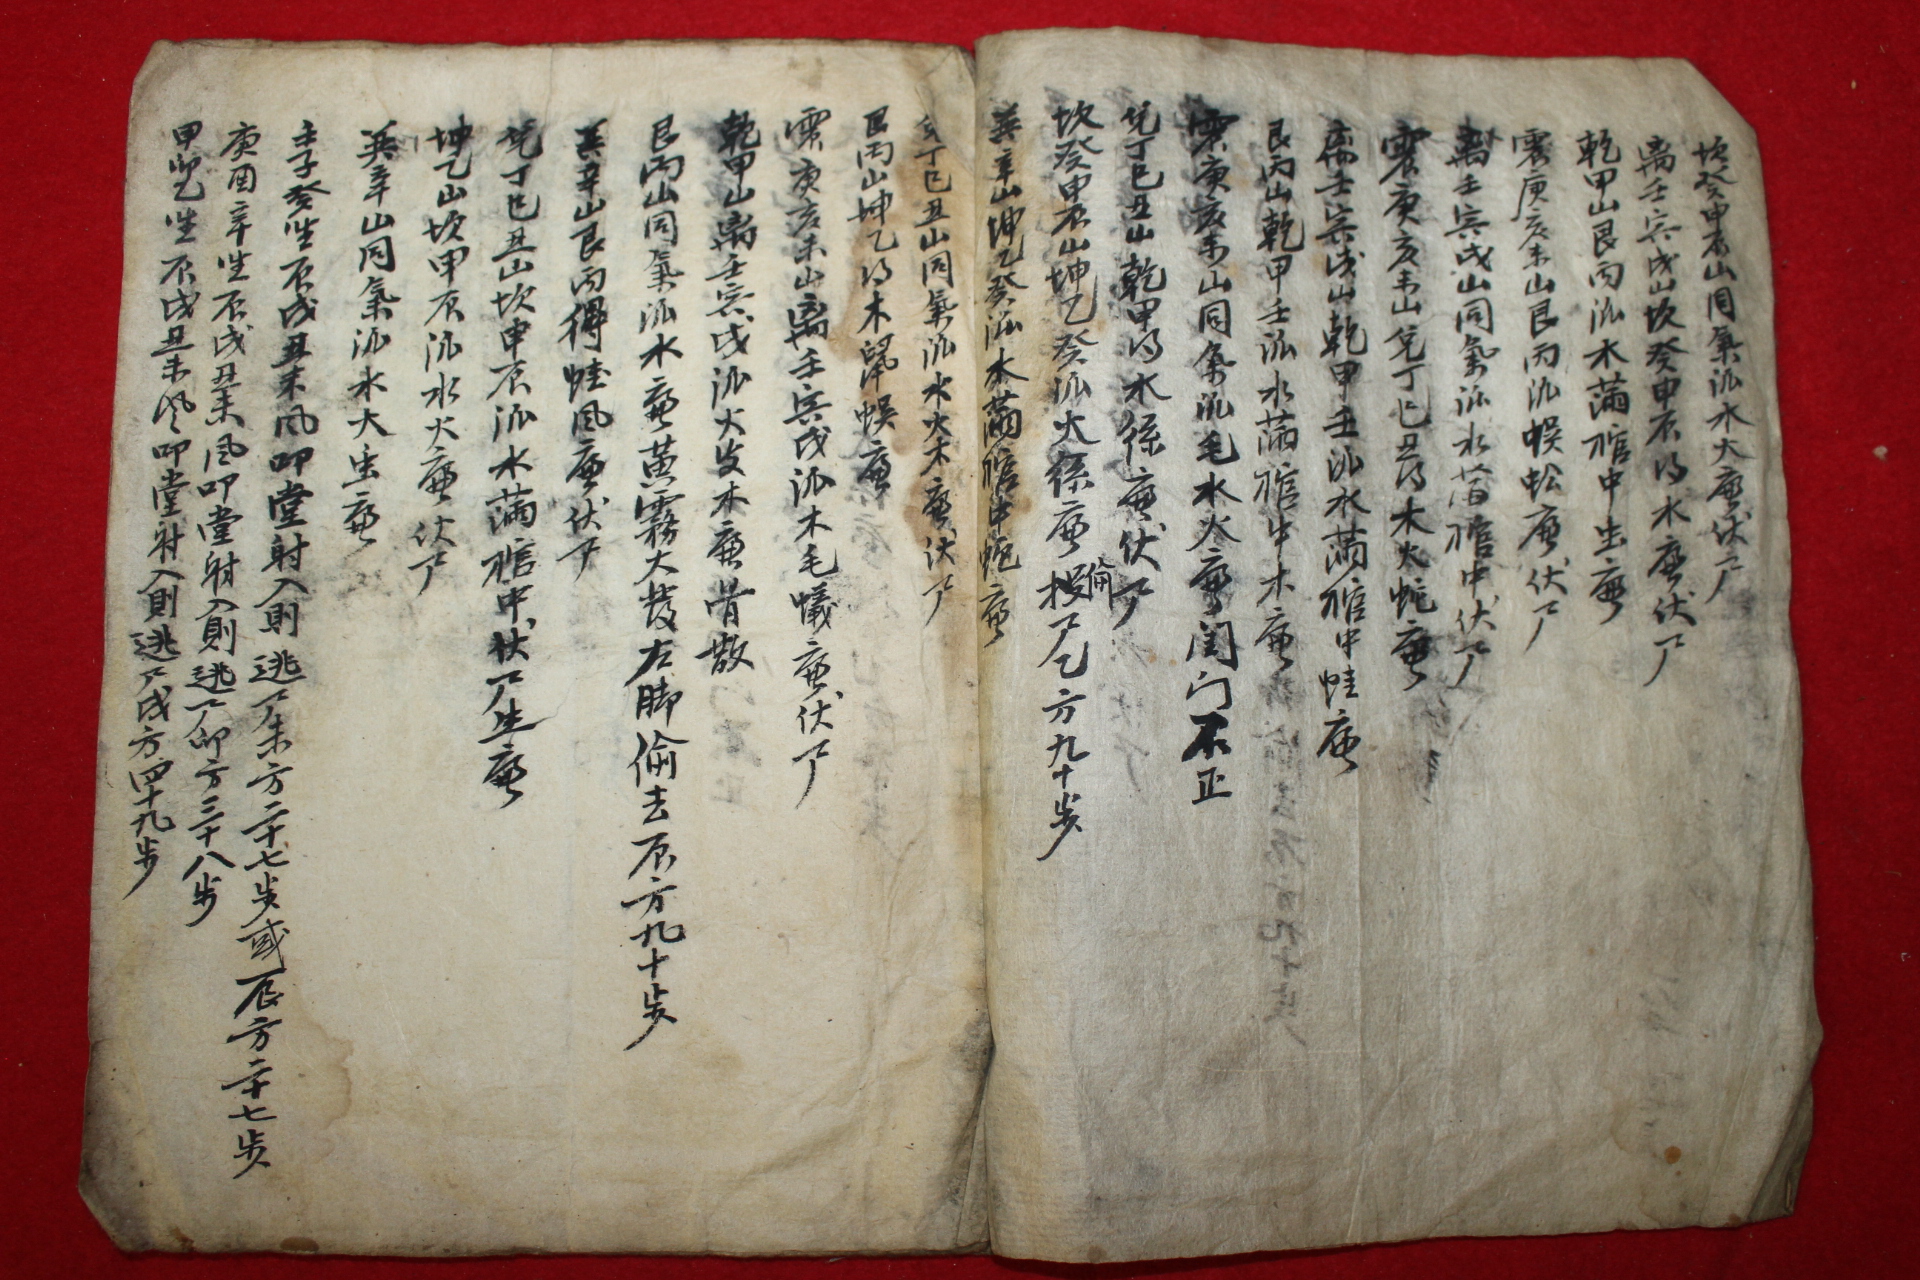 坎癸申辰山同氣派水火廉伏尸
离壬寅戌山坎癸申辰得水廉伏尸
乾甲山艮丙派木滿棺中虫廉
震庚亥未山艮丙派蜈蚣廉伏尸
离壬寅戌山同氣派水落棺中伏尸
震庚亥未山兌丁巳丑得木火蛇廉
离壬寅戌山乾甲壬派水滿棺中蛙廉
艮丙山乾甲壬派水滿棺中木廉
震庚亥未山同氣派毛水火廉閨門不正
兌丁巳丑山乾甲得水係廉伏尸
坎癸申辰山坤乙癸派火係廉偷尸乙方九十步
巽辛山坤乙癸派木滿棺中蛇廉
兌丁巳丑山同氣派水火木廉伏尸
艮丙山坤乙得木鼠蜈廉
震庚亥未山离壬寅戌派木毛蟻廉伏尸
乾甲山离壬寅戌派火炎木廉骨散
艮丙山同氣派水廉黃霧大發左脚偷去辰方九十步
巽辛山艮丙得蛙風廉伏尸
兌丁巳丑山坎申辰派水滿棺中伏尸生廉
坤乙山坎甲辰派水火廉伏尸
巽辛山同氣派水大虫廉
壬子癸坐辰戌丑未風叩堂射入則逃尸未方二十七步或辰方二十七步
庚酉辛坐辰戌丑未風叩堂射入則逃尸卯方三十八步
甲卯乙坐辰戌丑未風叩堂射入則逃尸戌方四十九步